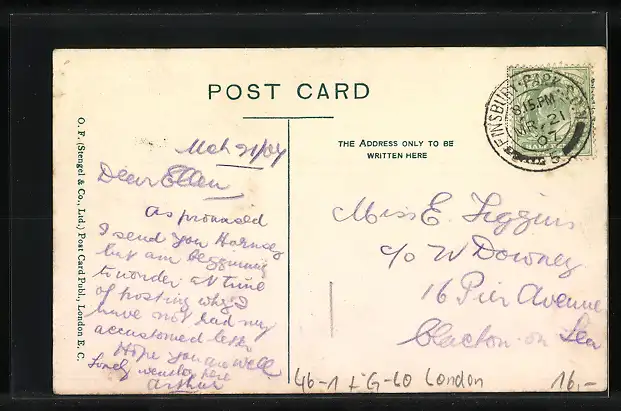 POST CARD
THE ADDRESS ONLY TO BE
WRITTEN HERE
O. F. (Stengel & Co., Ltd.) Post Card Publ., London E. C.
FINSBURY PARK STN
8.15 PM
MR 21
07
5
Mch 21/07
Dear Ellen
As promised
I send you Hornsey
but am beginning
to wonder at time
of posting why I
have not had my
accustomed letter
Hope you are well
Lovely weather here
Arthur
Miss E. Figgins
c/o W Downey
16 Pier Avenue
Clacton-on-Sea
46-1 + G-60 London
16,-